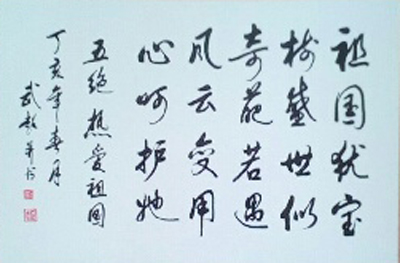 祖国犹宝
树盛世似
奇葩若遇
风云变用
心呵护她
五绝 热爱祖国
丁亥年春月
武 并书